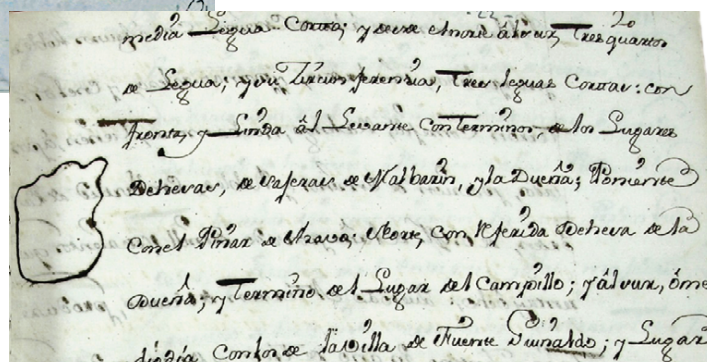 media Legua Corta; y desde el norte âl sur, Tres quartos
de Legua; y su Zircumferenzia, Tres leguas Cortas: con
fronta, y Linda âl Levante con Terminos, de los Lugares
Dehevas, de de Malbarin, y la Dueña; Poniente
con el Pinar de Norte, con referida Deheva de la
Dueña; y Termino de el Lugar de el Campillo; y âl sur, ô me
diodia con los de la Villa de Fuente Guinaldo; y Lugar